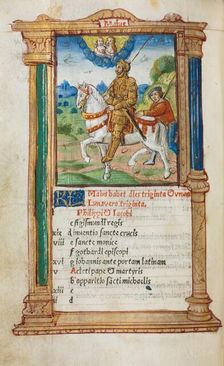 Maius habet dies triginta & unum
Luna vero triginta.
Philippi & Jacobi
c sigismundi regis
xix d inventio sancte crucis
viii e sancte monice
f gothardi episcopi
xvi g iohannis ante portam latinam
v A cleti pape & martyris
b apparitio sancti michaelis
xiii c
ii d